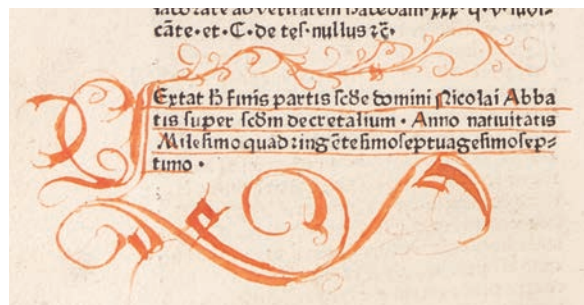 cāte·et·C·de teſ·nullus ⁊c̄·
Extat h̄ finis partis ſcd̄e domini Nicolai Abba
tis ſuper ſcd̄m decretalium · Anno natiuitatis
Mileſimo quadꝛingēteſimoſeptuageſimoſep⸗
timo ·